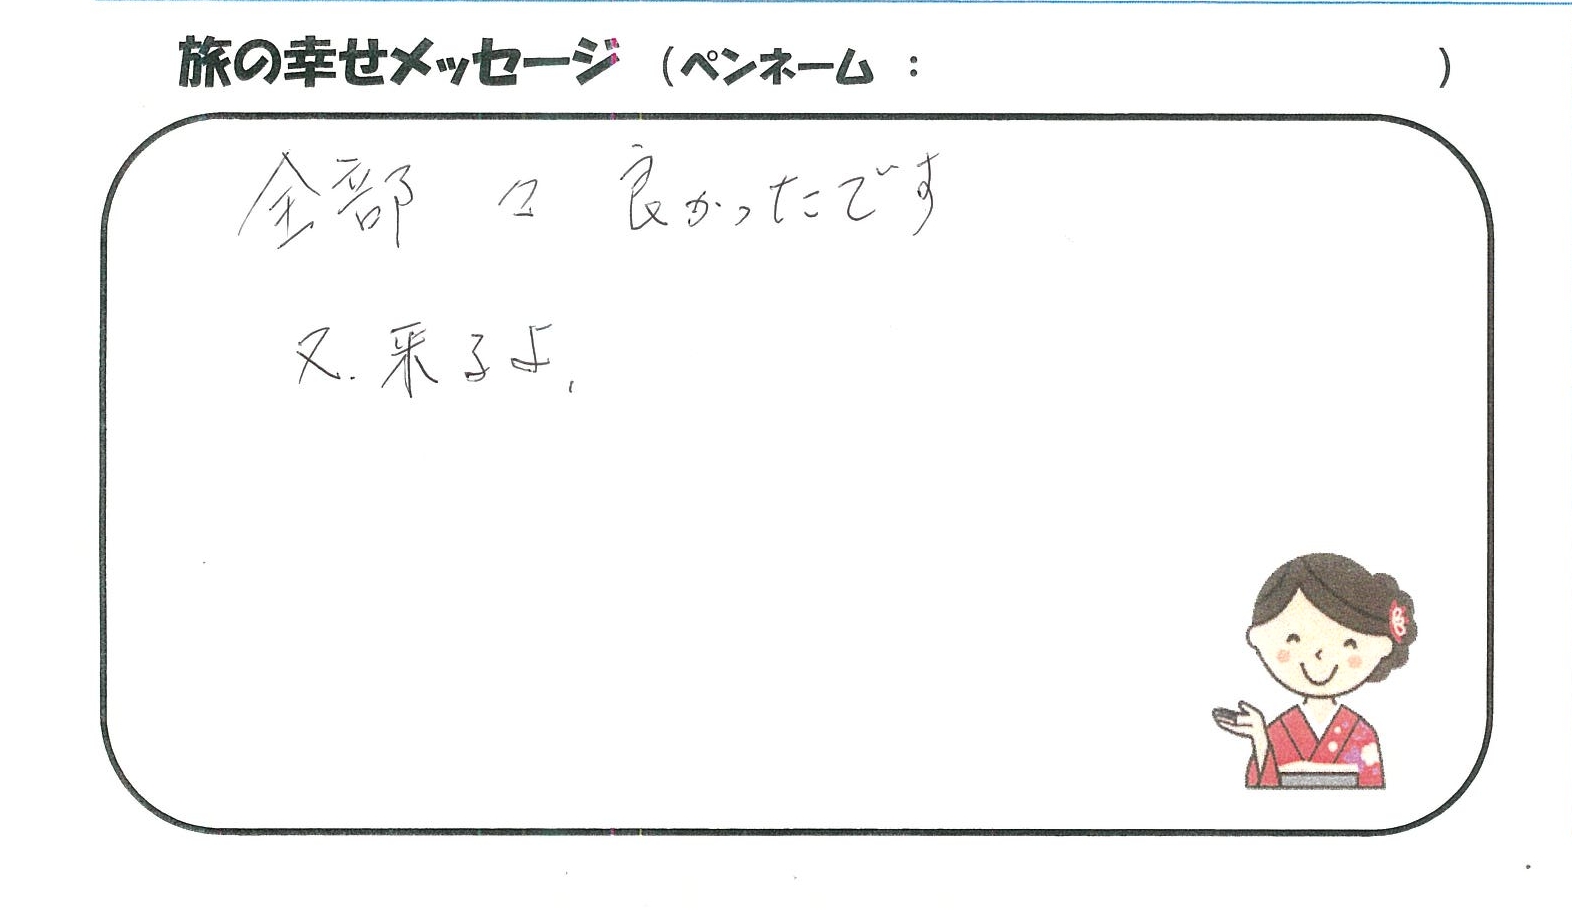 旅の幸せメッセージ（ペンネーム：　　　）
全部 々 良かったです
又.来るよ、